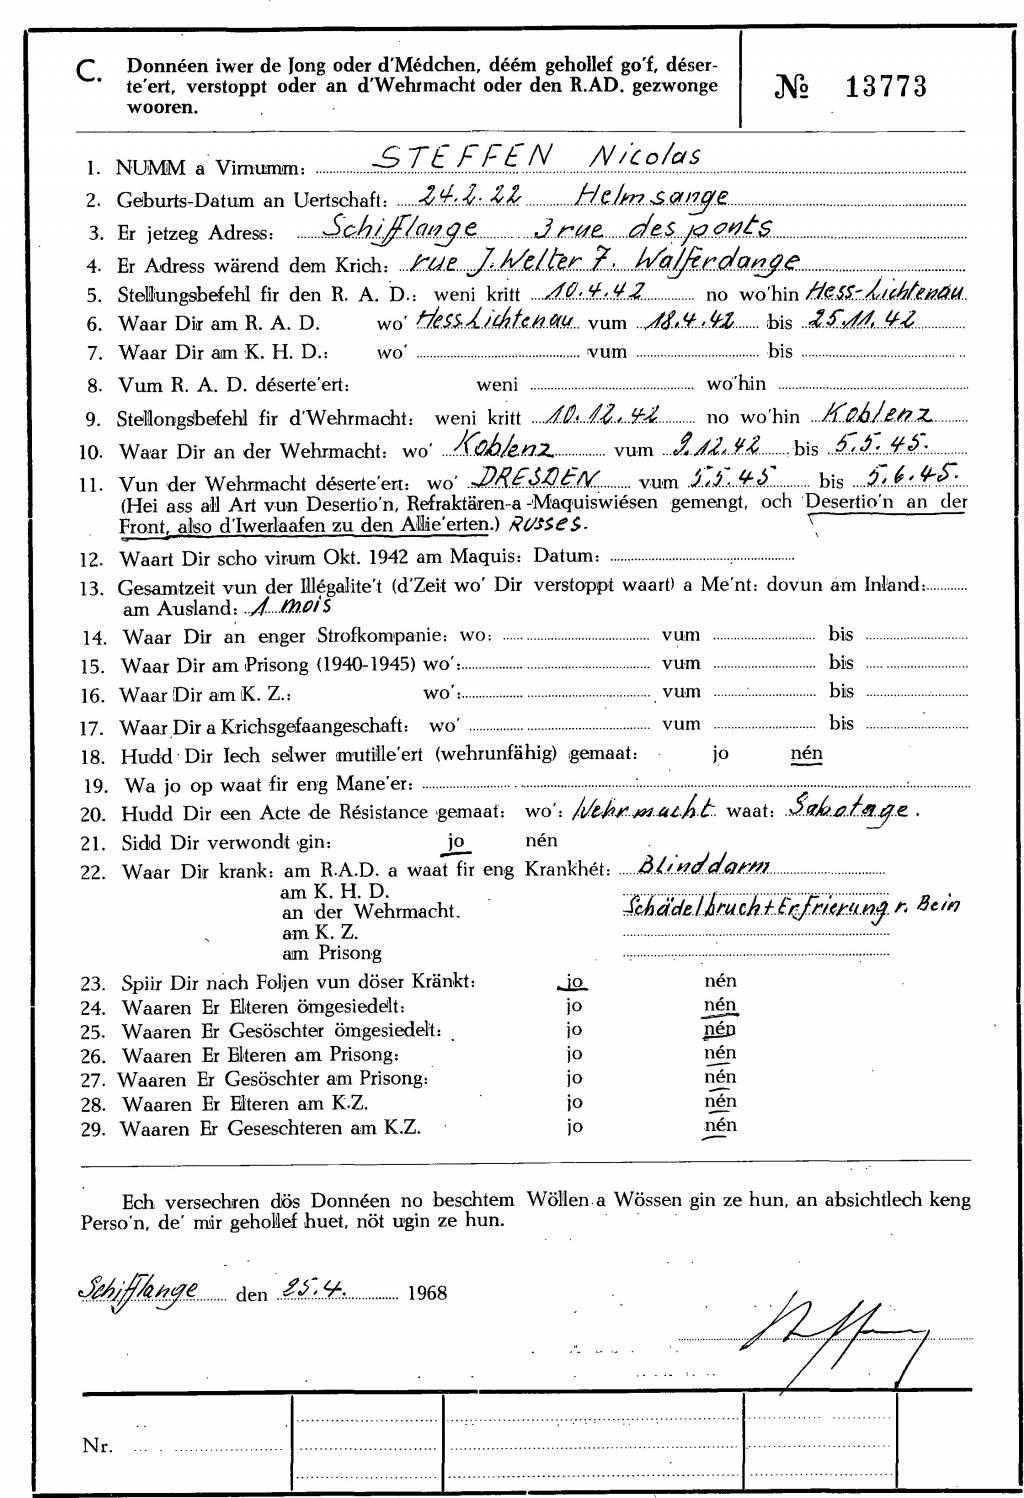 C. Donnéen iwer de Jong oder d'Médchen, déém gehollef go'f, déser-
te'ert, verstoppt oder an d'Wehrmacht oder den R.AD. gezwonge
wooren.
№ 13773
1. NUMM a Virnumm: STEFFEN Nicolas
2. Geburts-Datum an Uertschaft: 24.2.22 Helmsange
3. Er jetzeg Adress: Schifflange 3 rue des ponts
4. Er Adress wärend dem Krich: rue J. Welter 7. Walferdange
5. Stellungsbefehl fir den R. A. D.: weni kritt 10.4.42 no wo'hin Hess-Lichtenau
6. Waar Dir am R. A. D. wo' Hess Lichtenau vum 18.4.42 bis 25.11.42
7. Waar Dir am K. H. D.: wo' vum bis
8. Vum R. A. D. déserte'ert: weni wo'hin
9. Stellongsbefehl fir d'Wehrmacht: weni kritt 10.12.42 no wo'hin Koblenz
10. Waar Dir an der Wehrmacht: wo' Koblenz vum 9.12.42 bis 5.5.45.
11. Vun der Wehrmacht déserte'ert: wo' DRESDEN vum 5.5.45 bis 5.6.45.
(Hei ass all Art vun Desertio'n, Refraktären-a -Maquiswiésen gemengt, och Desertio'n an der
Front, also d'Iwerlaafen zu den Allie'erten.) RUSSES.
12. Waart Dir scho virum Okt. 1942 am Maquis: Datum:
13. Gesamtzeit vun der Illégalite't (d'Zeit wo' Dir verstoppt waart) a Me'nt: dovun am Inland:
am Ausland: 1 mois
14. Waar Dir an enger Strofkompanie: wo: vum bis
15. Waar Dir am Prisong (1940-1945) wo': vum bis
16. Waar Dir am K. Z.: wo': vum bis
17. Waar Dir a Krichsgefaangeschaft: wo' vum bis
18. Hudd Dir Iech selwer mutille'ert (wehrunfähig) gemaat: jo nén
19. Wa jo op waat fir eng Mane'er:
20. Hudd Dir een Acte de Résistance gemaat: wo': Wehrmacht waat: Sabotage.
21. Sidd Dir verwondt gin: jo nén
22. Waar Dir krank: am R.A.D. a waat fir eng Krankhét: Blinddarm
am K. H. D.
an der Wehrmacht. Schädelbruch + Erfrierung r. Bein
am K. Z.
am Prisong
23. Spiir Dir nach Foljen vun döser Kränkt: jo nén
24. Waaren Er Elteren ömgesiedelt: jo nén
25. Waaren Er Gesöschter ömgesiedelt: jo nén
26. Waaren Er Elteren am Prisong: jo nén
27. Waaren Er Gesöschter am Prisong: jo nén
28. Waaren Er Elteren am K.Z. jo nén
29. Waaren Er Geseschteren am K.Z. jo nén
Ech versechren dös Donnéen no beschtem Wöllen a Wössen gin ze hun, an absichtlech keng
Perso'n, de' mir gehollef huet, nöt ugin ze hun.
Schifflange den 25.4. 1968
Nr.